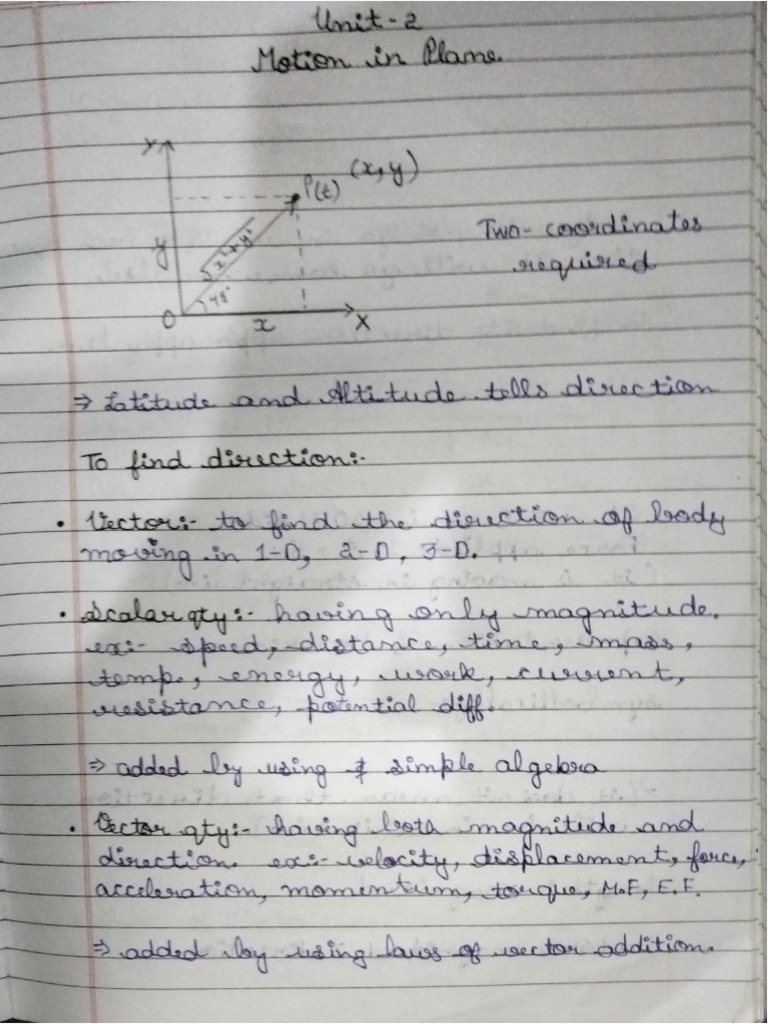 Unit-2
Motion in Plane
Y
P(t) (x, y)
y
√x²+y²
45°
O x X
Two-coordinates
required
⇒ Latitude and Altitude tells direction
To find direction:-
• Vector:- to find the direction of body
moving in 1-D, 2-D, 3-D.
• Scalar qty:- having only magnitude.
ex:- speed, distance, time, mass,
temp., energy, work, current,
resistance, potential diff.
⇒ added by using simple algebra
• Vector qty:- having both magnitude and
direction. ex:- velocity, displacement, force,
acceleration, momentum, torque, M.F, E.F.
⇒ added by using laws of vector addition.